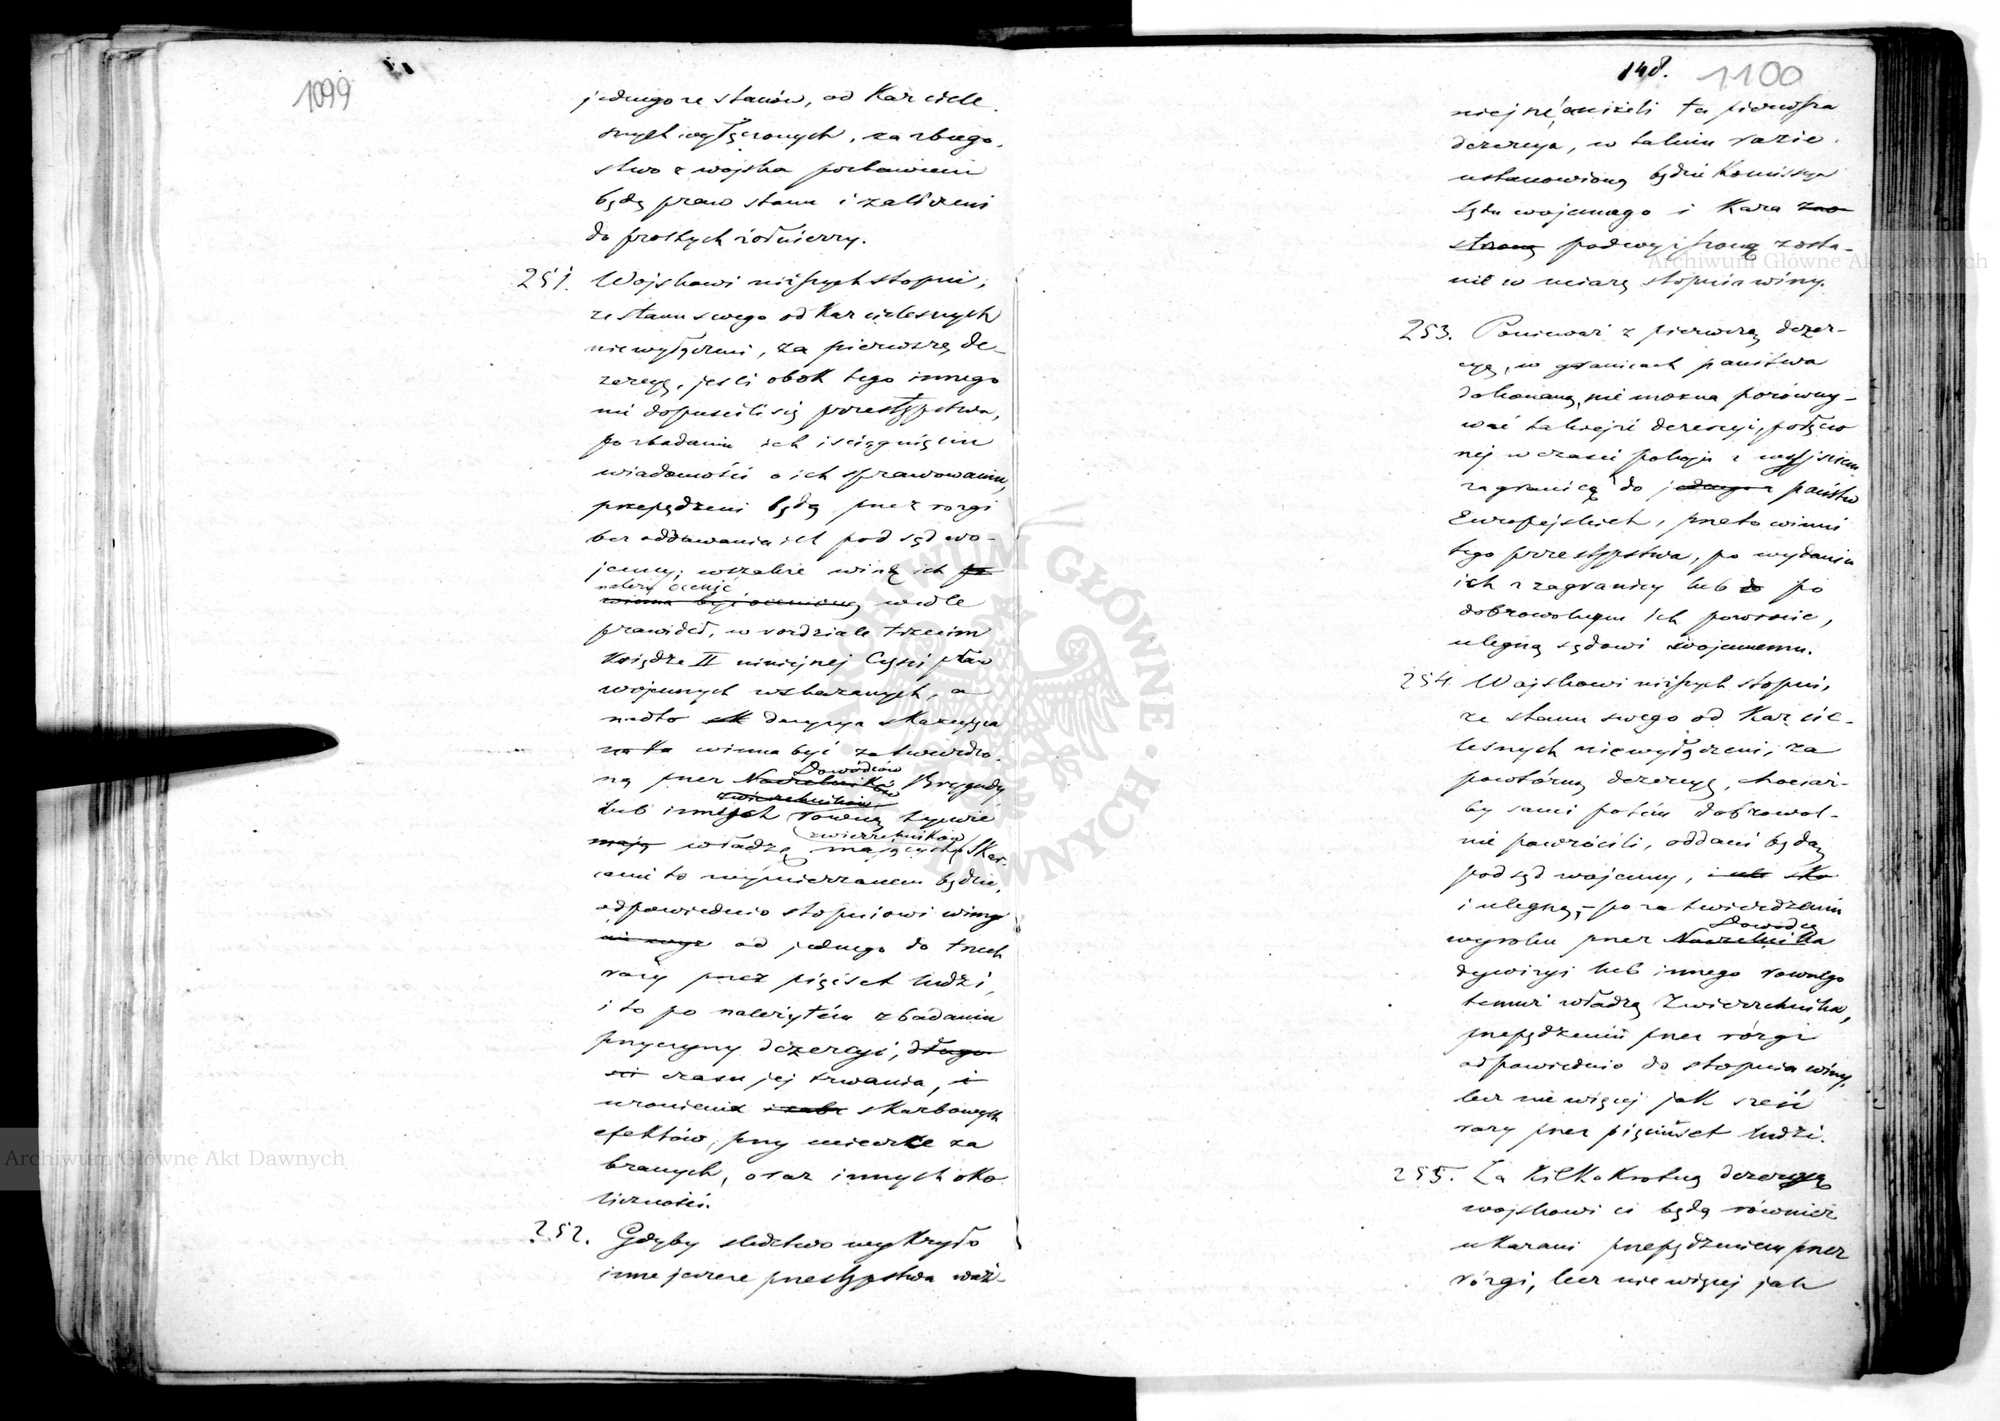 1099
jednego ze stanów, od Kar ciele
snych wyłączonych, za zbiego
stwo z wojska pozbawieni
będą praw stanu i zaliczeni
do prostych żołnierzy.
251. Wojskowi niższych stopni,
ze stanu swego od Kar cielesnych
niewyłączeni, za pierwszą de-
zercyę, jeśli obok tego innego
nie dopuścili się przestępstwa,
po zbadaniu ich i ściągnięciu
wiadomości o ich sprawowaniu,
przepędzeni będą przez rózgi
bez oddawania ich pod sąd wo-
jenny; wszakże winę ich
należy ocenić
winna być ocenioną wedle
prawideł, w rozdziale trzecim
Księdze II niniejszej Części praw
wojennych wskazanych, a
nadto decyzya skazująca
na to winna być zatwierdzo-
Dowódców
ną przez Naczelników Brygady
zwierzchników
lub innych równą tymże
zwierzchników
mają władzę mających; Ska-
zani to wymierzanem będzie,
odpowiednio stopniowi winy
nie więcej od jednego do trzech
razy przez pięćset ludzi,
i to po należytém zbadaniu
przyczyny dezercyi, długo
ści czasu jej trwania, i
uronienia skarbowych
efektów, przy ucieczce za
branych, oraz innych oko
liczności.
252. Gdyby śledztwo wykryło
inne jeszcze przestępstwa waż-
148. 1100
niejsze, aniżeli ta pierwsza
dezercya, w takim razie
ustanowioną będzie Komissya
Sądu wojennego i Kara zao
strzoną podwyższoną zosta-
nie w miarę stopnia winy.
253. Ponieważ z pierwszą dezer-
cyą, w granicach państwa
dokonaną, nie można porówny-
wać takiejże dezercyi, połączo
nej w czasie pokoju z wyjściem
zagranicę do jednego z państw
Europejskich, przeto winni
tego przestępstwa, po wydaniu
ich z zagranicy lub do po
dobrowolnym ich powrocie,
ulegną sądowi wojennemu.
254. Wojskowi niższych stopni,
ze stanu swego od Kar cie-
lesnych niewyłączeni, za
powtórną dezercyę, chociaż-
by sami potém dobrowol-
nie powrócili, oddani będą
pod sąd wojenny,
i ulegną, po zatwierdzeniu
Dowódcę
wyroku przez Naczelnika
dywizyi lub innego równego
temuż władzą Zwierzchnika,
przepędzeniu przez rózgi
odpowiednio do stopnia winy,
lecz nie więcej jak sześć
razy przez pięćset ludzi.
255. Za Kilkakrotną dezercyą
wojskowi ci będą również
ukarani przepędzeniem przez
rózgi, lecz nie więcej jak
Archiwum Główne Akt Dawnych
Archiwum Główne Akt Dawnych
ARCHIWUM GŁÓWNE AKT DAWNYCH